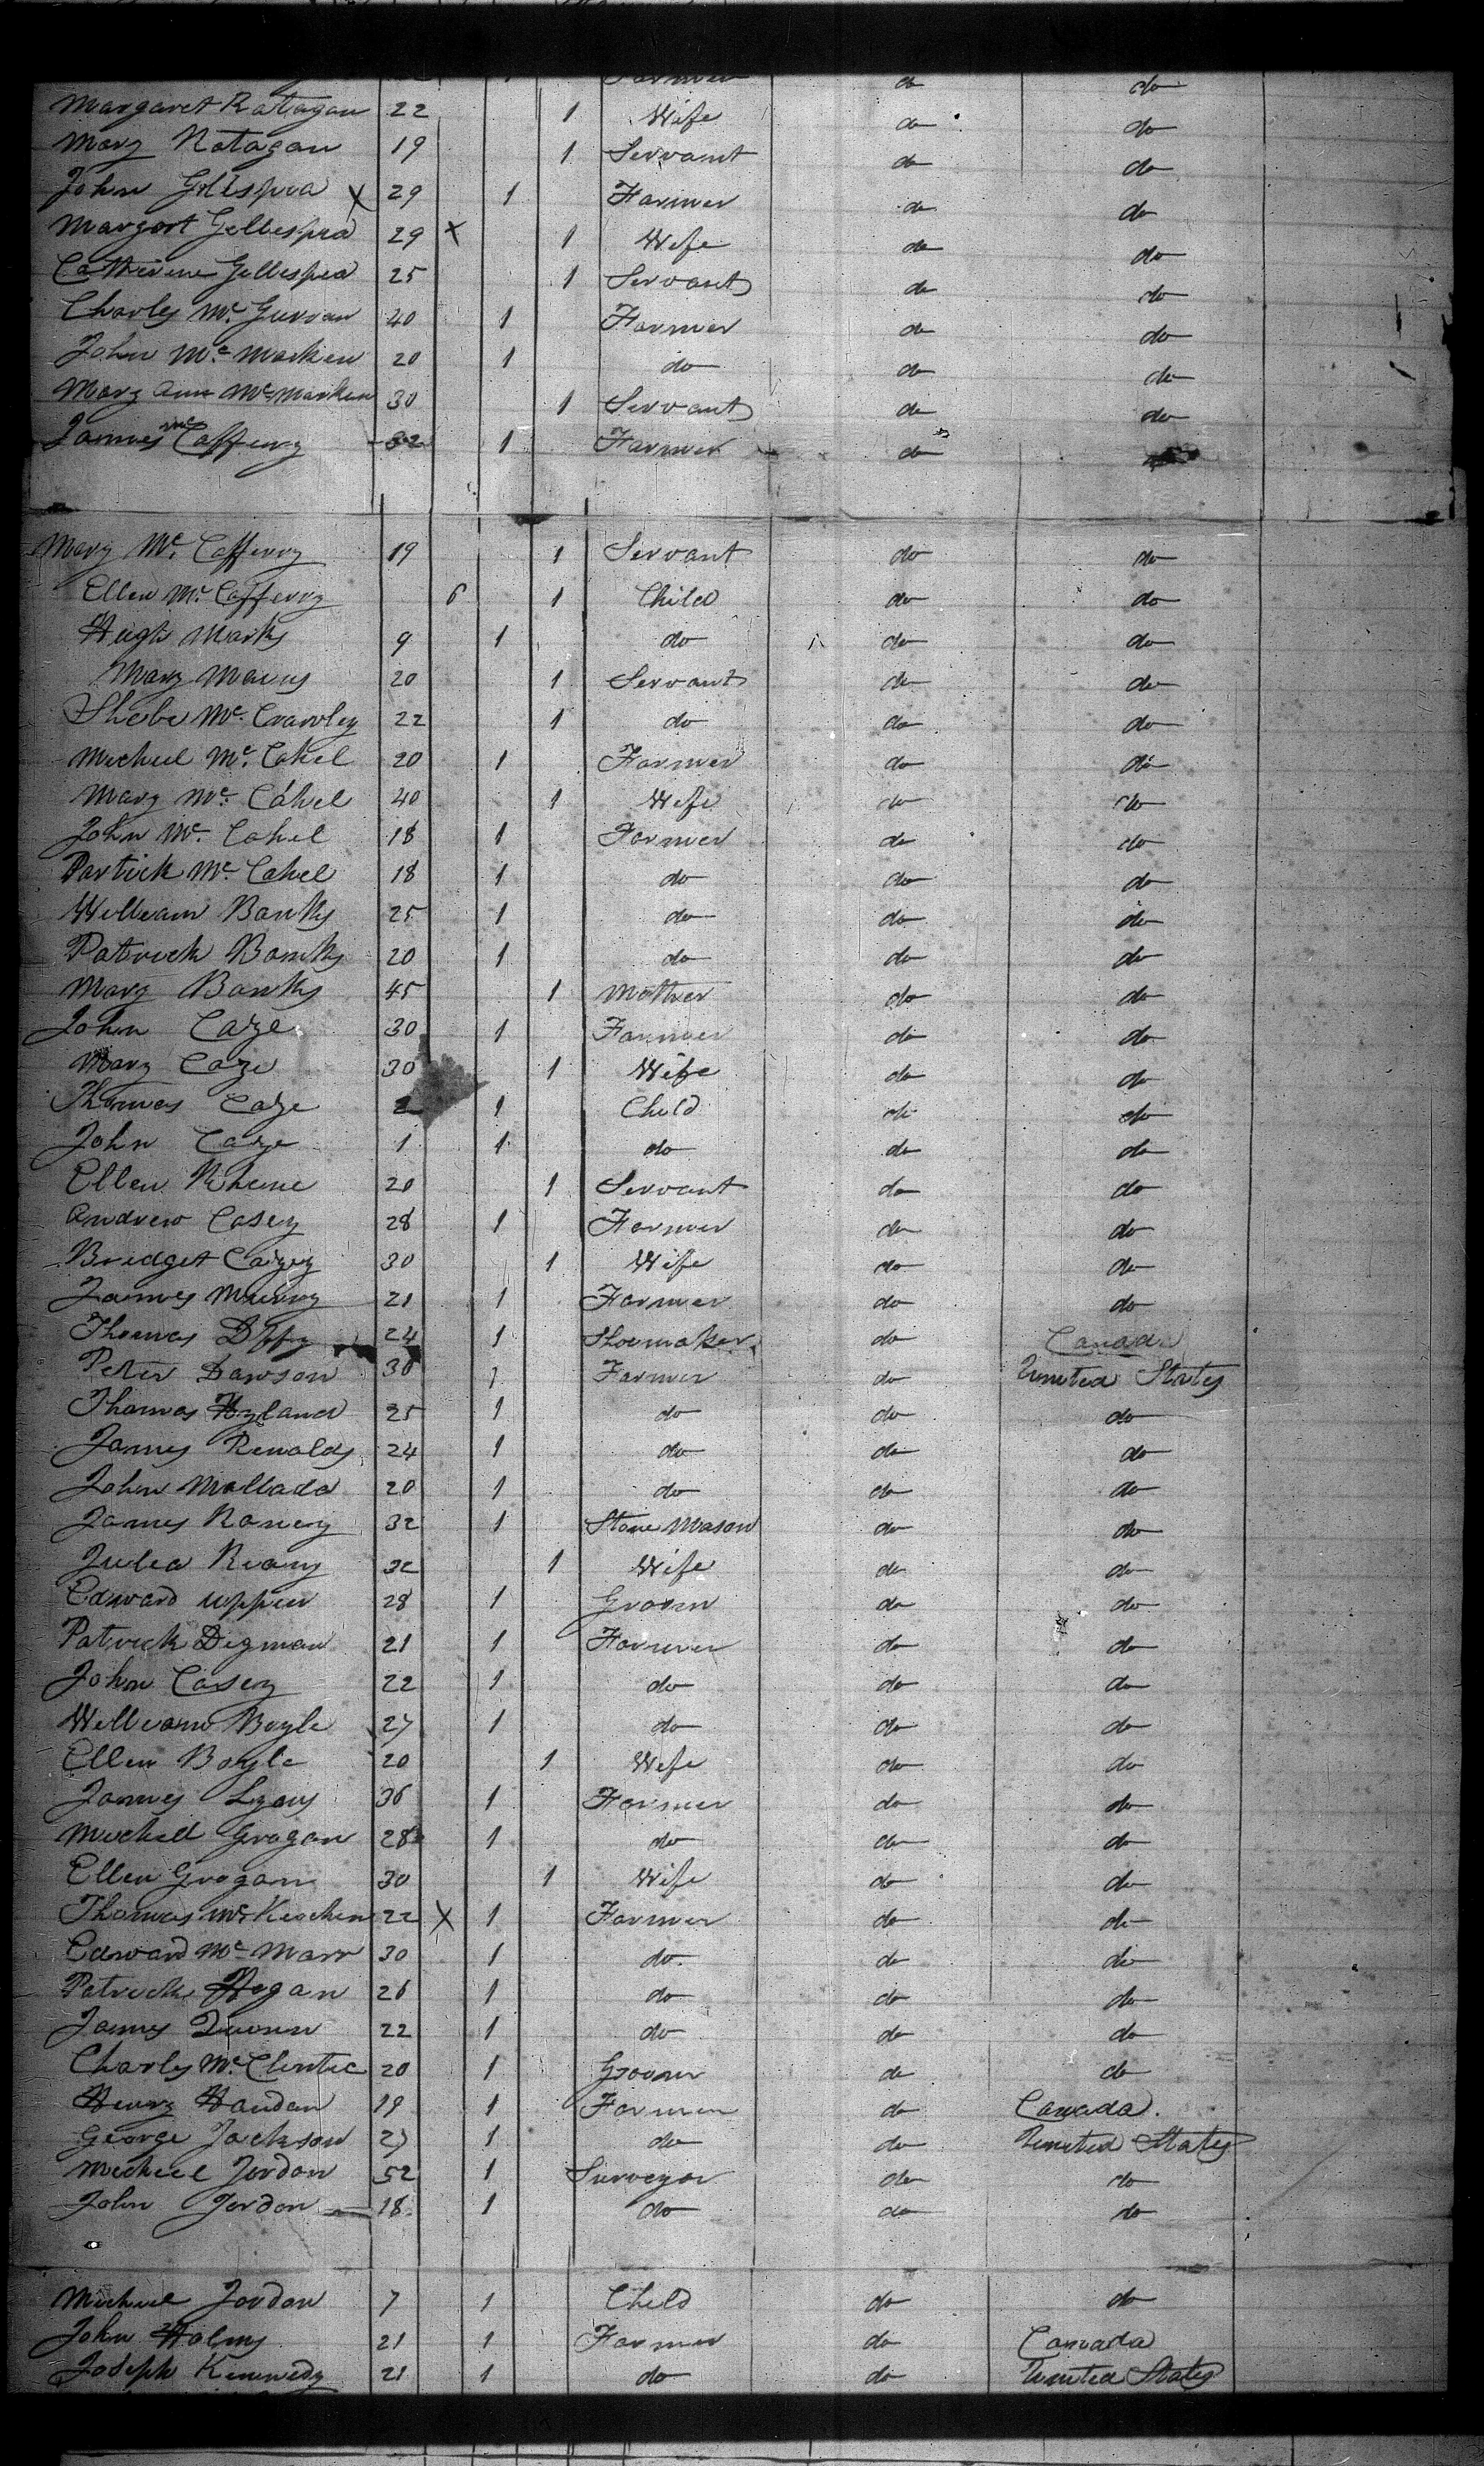 Farmer do do
Margaret Ratagan 22 1 Wife do do
Mary Ratagan 19 1 Servant do do
John Gillespea X 29 1 Farmer do do
Margort Gellespea 29 X 1 Wife do do
Catherine Gellespea 25 1 Servant do do
Charles Mc Gurran 40 1 Farmer do do
John Mc Marken 20 1 do do do
Mary Ann Mc Marken 30 1 Servant do do
James Mc Cafferry 32 1 Farmer do
Mary Mc Cafferry 19 1 Servant do do
Ellen Mc Cafferry 6 1 Child do do
Hugh Marks 9 1 do do do
Mary 20 1 Servant do do
Mc Crawley 22 1 do do do
Micheel Mc Cahel 20 1 Farmer do do
Mary Mc Cahel 40 1 Wife do do
John Mc Cahel 18 1 Farmer do do
Partick Mc Cahel 18 1 do do do
William Banks 25 1 do do do
Patrick Banks 20 1 do do do
Mary Banks 45 1 Mother do do
John Caze 30 1 Farmer do do
Mary Caze 30 1 Wife do do
Thomas Caze 2 1 Child do do
John Caze 1 1 do do do
Ellen 20 1 Servant do do
Andrew Casey 28 1 Farmer do do
Bridget Cazey 30 1 Wife do do
James Murry 21 1 Farmer do do
Thomas 24 1 Shoemaker do Canada
Peter Dawson 30 1 Farmer do United States
Thomas Hyland 25 1 do do do
James Renolds 24 1 do do do
John Mollada 20 1 do do do
James Roney 32 1 Stone Mason do do
Julea 32 1 Wife do do
Edward 28 1 Groom do do
Patrick Degman 21 1 Farmer do do
John Casey 22 1 do do do
William Boyle 27 1 do do do
Ellen Boyle 20 1 Wife do do
James Lyons 36 1 Farmer do do
Micheel Grogan 28 1 do do do
Ellen Grogan 30 1 Wife do do
Thomas Mc 22 X 1 Farmer do do
Edward Mc Marr 30 1 do do do
Patrick Hogan 26 1 do do do
James Quinn 22 1 do do do
Charles Mc Clentec 20 1 Groom do do
Henry Handan 19 1 Farmer do Canada.
George Jackson 27 1 do do United States
Micheel Jordon 52 1 Surveyor do do
John Jordon 18 1 do do do
Micheel Jordon 7 1 Child do do
John Holms 21 1 Farmer do Canada
Joseph Kennedy 21 1 do do United States